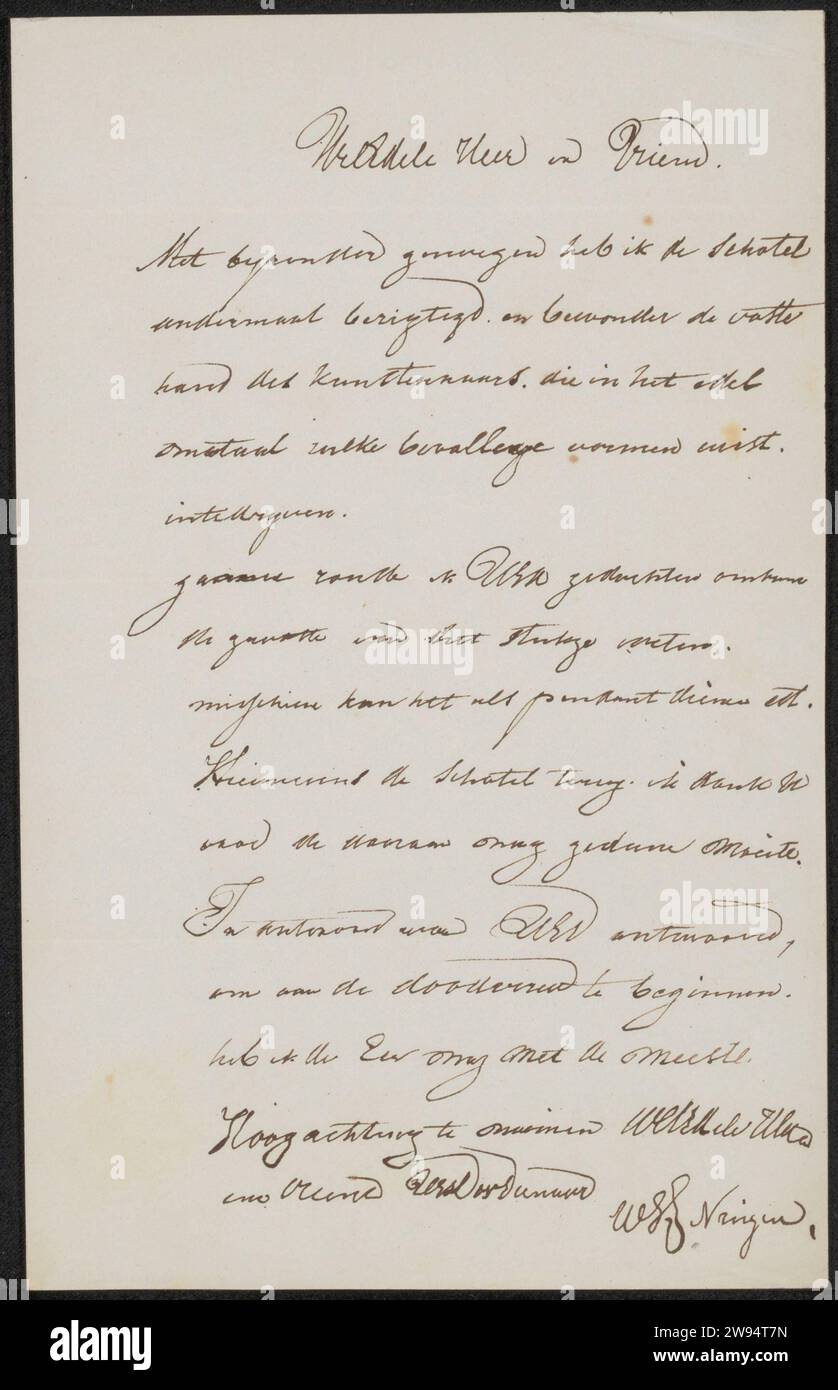 WelEdele Heer en Vriend.
Met byzonder genoegen heb ik de Schotel
andermaal bezigtigd. en bewonder de vaste
hand des Kunstenaars. die in het edel
metaal zulke bevallige vormen wist.
intedryven.
gaarne zoude ik UEd gedachten omtrent
de grootte van het stukje weten.
misschien kan het als pendant dienen
Hiernevens de Schotel terug. ik dank U
voor de daaraan gedane Moeite.
In antwoord van UEd antwoord,
om aan de te beginnen.
heb ik de Eer my met de meeste.
Hoogachting te noemen WelEdele Heer
en Vriend UEd Dienaar
alamy
Image ID: 2W94T7N
www.alamy.com